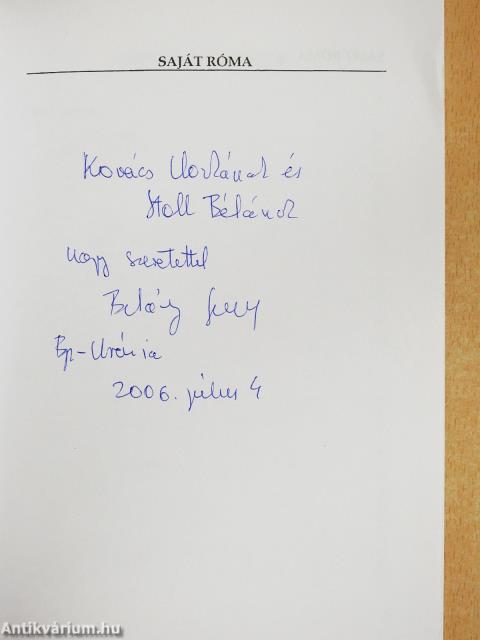 SAJÁT RÓMA
Kovács Ilonának és
Stoll Bélának
nagy szeretettel
Bp-Uránia
2006. július 4
Antikvárium.hu